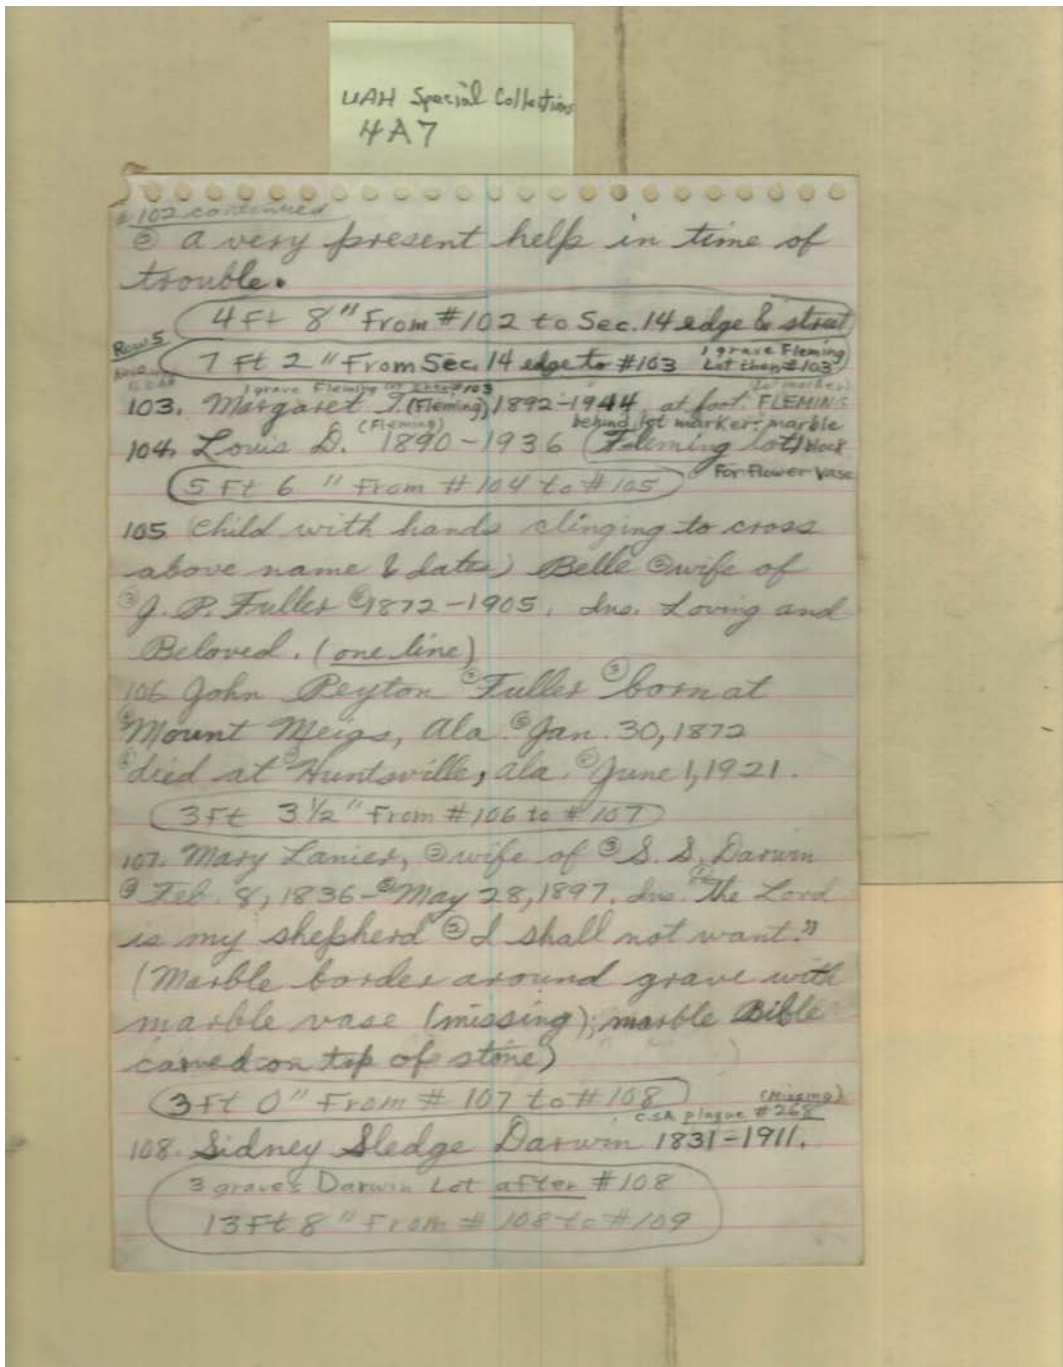 UAH Special Collections
4A7
# 102 continued
② a very present help in time of
trouble.
4 Ft 8" From #102 to Sec. 14 edge & street
Row 5
7 Ft 2" From Sec. 14 edge to #103 1 grave Fleming
Lot then #103
1 grave Fleming lot #103 (Lot marker)
103. Margaret T. (Fleming) 1892-1944 at foot. FLEMING
(Fleming) behind lot marker: marble
104. Louis D. 1890-1936 (Fleming lot) block
For Flower Vase
5 Ft 6" From #104 to #105
105 (Child with hands clinging to cross
above name & dates) Belle ② wife of
③ J. P. Fuller ④ 1872-1905. Ins. Loving and
Beloved. (one line)
106 John Peyton ② Fuller ③ born at
④ Mount Meigs, Ala. ⑤ Jan. 30, 1872
⑥ died at ⑦ Huntsville, Ala. ⑧ June 1, 1921.
3 Ft 3 1/2" From #106 to #107
107. Mary Lanier, ② wife of ③ S. S. Darwin
④ Feb. 8, 1836-⑤ May 28, 1897. Ins. ① "The Lord
is my shepherd ② I shall not want."
(Marble border around grave with
marble vase (missing); marble Bible
carved on top of stone)
3 Ft 0" From # 107 to # 108 (missing)
CSA plaque #268
108. Sidney Sledge Darwin 1831-1911.
3 graves Darwin Lot after #108
13 Ft 8" From # 108 to #109